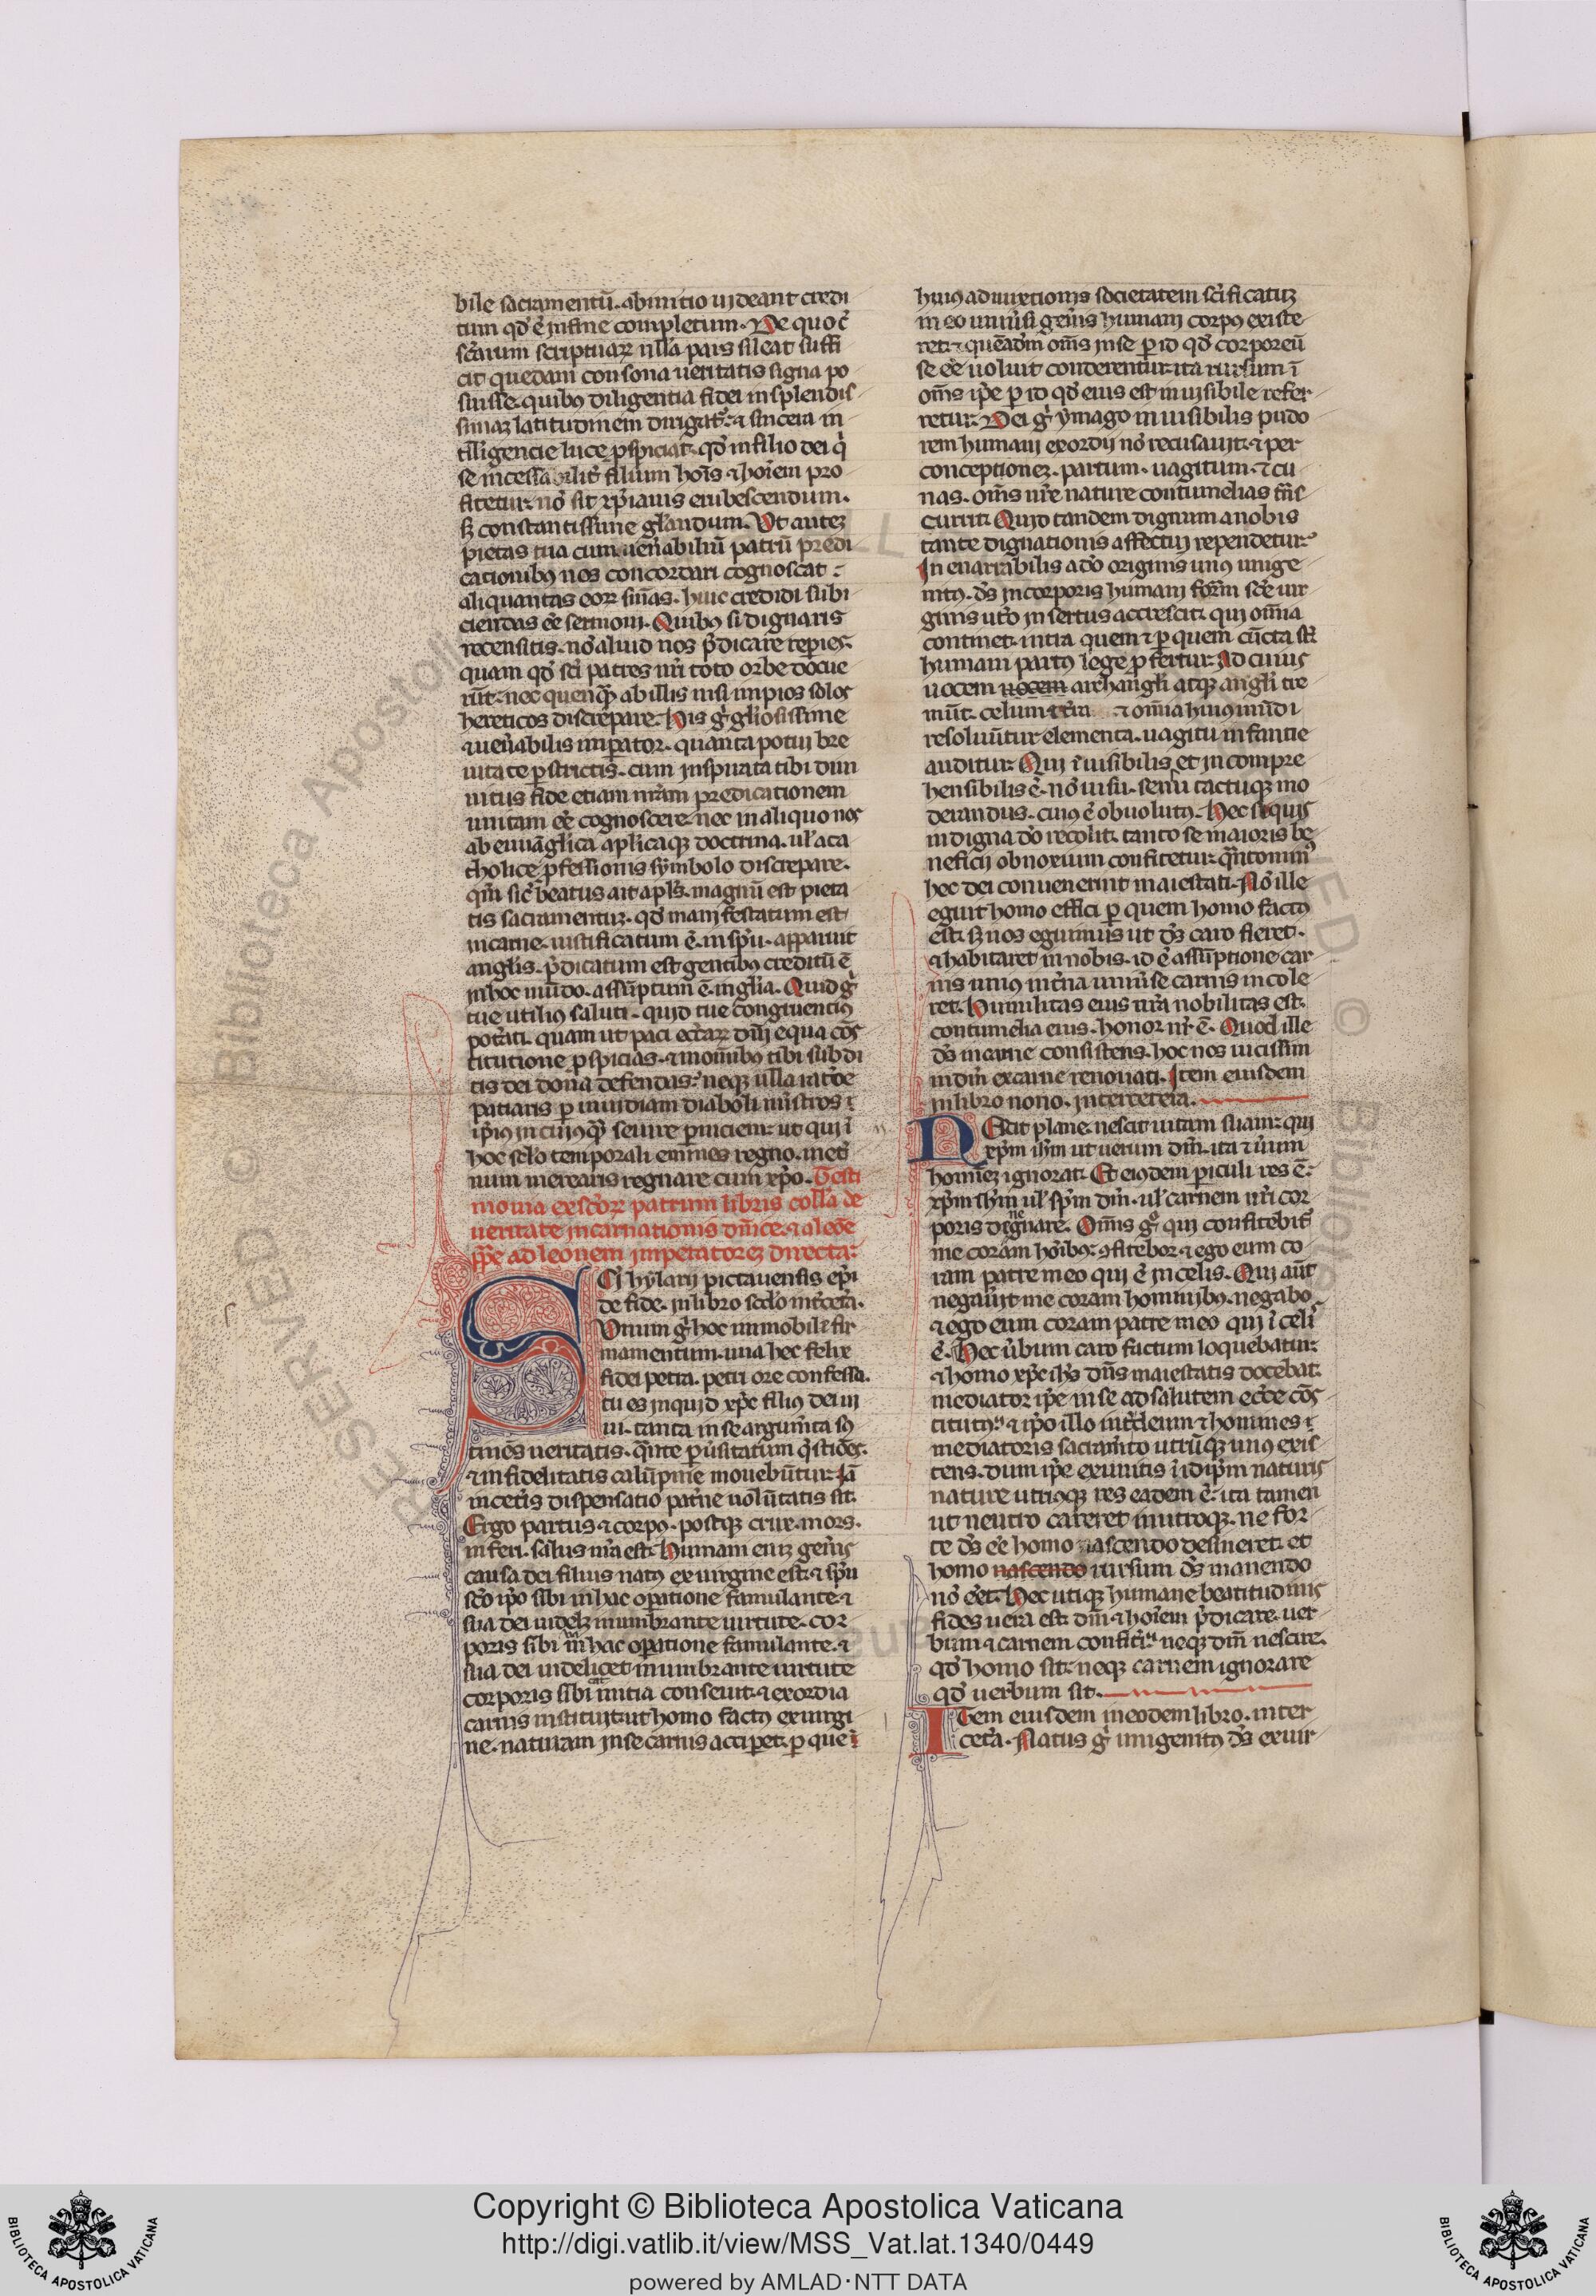 bile sacramentū. ab initio uideant credi
tum qď ē in fine completum. De quo ē
sc̄arum scripturaꝝ nulla pars sileat suffi
cit quedam consona ueritatis signa po
suisse. quibꝰ diligentia fidei in splendis
simaꝫ latitudinem dirigat᷑. ⁊ sincera in
telligencie luce ꝑspiciat. qď in filio dei q̇
se incessabilit᷑ filium hoīs ⁊ hoīem pro
fitetur. nō sit xp̄ianis erubescendum.
sꝫ constantissime gl̄andum. Vt auteꝫ
pietas tua cum uen̄abiliū patrū predi
cationibꝰ nos concordari cognoscat:
aliquantas eoꝝ sn̄ias. huic credidi subi
ciendas eē sermoni. Quibꝰ si dignaris
recensitis. nō aliud nos p̄dicare reperies.
quam qď sc̄i patres nr̄i toto orbe docue
rūt. nec quenqꝫ ab illis nisi impios solos
hereticos discrepare. His g̊ gl̄iosissime
⁊ uen̄abilis imperator. quanta potui bre
uitate ꝑstrictis. cum inspirata tibi diui
nitus fide etiam nr̄am predicationem
unitam eē cognoscere. nec in aliquo nos
ab euuāglica apl̄icaqꝫ doctrina. ul̄ a ca
tholice ꝓfessionis symbolo discrepare.
qm̄ sic̄ beatus ait apl̄s. magnū est pieta
tis sacramentuꝫ. qď manifestatum est
in carne. iustificatum ē. in sp̄u. apparuit
angl̄is. p̄dicatum est gentibꝰ creditū ē
in hoc mūdo. assūptum ē. in gl̄ia. Quid g̊
tue utilius saluti. quid tue congruentiꝰ
potēti. quam ut paci ecc̄iaꝝ dn̄i equa cōs
titutione ꝑspicias. ⁊ in omībꝰ tibi subdi
tis dei dona defendas. neqꝫ ulla rat̄oe
patiaris ꝑ inuidiam diaboli mīstros ī
ip̄ius in cuiꝰqꝫ seuire ꝑniciem. ut qui ī
hoc sc̄lo temporali emines regno. in et̄
num merearis regnare cum xp̄o. Testi
monia ex sc̄oꝝ patrum libris coll̄a de
ueritate incarnationis dn̄ice. ⁊ a leōe
pp̄e ad leonem imperatoreꝫ directa.
SCi hylarij pictauensis ep̄i
de fide. in libro sc̄do int̄ cet̄a.
Vnum g̊ hoc immobile fir
mamentum. una hec felix
fidei petra. petri ore confessa.
tu es inquid xp̄c filius dei ui
ui. tanta in se argum̄ta sꝰ
tinēs ueritatis. q̄nte ꝑuersitatum q̄stiōes.
⁊ infidelitatis calūpnie mouebūtur. Iā
in cet̄is dispensatio pat̄ne uolūtatis sit.
Ergo partus ⁊ corpꝰ. postqꝫ crux. mors.
inferi. salus nr̄a est. Humani eniꝫ gen̄is
causa dei filius natꝰ ex uirgine est. ⁊ sp̄u
sc̄o ip̄o sibi in hac operatione famulante. ⁊
sua dei uidelꝫ inumbrante uirtute. cor
poris sibi in hac operatione famulante. ⁊
sua dei uidelicet inumbrante uirtute
corporis sibi initia conseuit. ⁊ exordia
carnis instituit. ut homo factꝰ ex uirgi
ne. naturam in se carnis acciperet. ꝑ queī
huiꝰ admixtionis societatem sc̄ificatuꝫ
in eo uniūsi gen̄is humani corpꝰ existe
ret. ⁊ quēadm̄ om̄s in se ꝑ id qď corporeū
se eē uoluit conderentur. ita rursum ī
om̄s ip̄e ꝑ id qď eius est inuisibile refer
retur. Dei g̊ ymago inuisibilis pudo
rem humani exordij nō recusauit. ⁊ per
conceptioneꝫ. partum. uagitum. ⁊ cu
nas. om̄s nr̄e nature contumelias t̄nsc
currit. Quid tandem dignum a nobis
tante dignationis affectui rependetur.
Inenarrabilis a dō originis unꝰ unige
nitꝰ. ds̄ in corporis humani form̄ sc̄e uir
ginis ut̄o insertus accrescit. qui om̄ia
continet. intra quem ⁊ ꝑ quem cūcta st̄
humani partꝰ lege ꝓfertur. Ad cuius
uocem uocem archangl̄i atqꝫ angl̄i tre
mūt. celum t̄ra ⁊ om̄ia huiꝰ mūdi
resoluūtur elementa. uagitu infantie
auditur. Qui īuisibilis et incompre
hensibilis ē. nō uisu. sensu tactuqꝫ mo
derandus. cunis ē obuolutꝰ. Hec si quis
indigna dō recolit. tanto se maioris be
neficij obnoxium confitetur. q̄nto minꝰ
hec dei conuenerint maiestati. Nō ille
eguit homo effici ꝑ quem homo factꝰ
est. sꝫ nos eguimus ut ds̄ caro fieret.
⁊ habitaret in nobis. id ē assūptione car
nis unius int̄na uniūse carnis incole
ret. Humilitas eius nr̄a nobilitas est.
contumelia eius. honor nr̄ ē. Quod ille
ds̄ in carne consistens. hoc nos uicissim
in dm̄ ex carne renouati. Item eiusdem
in libro nono. inter cetera.
NEscit plane. nescit uitam suam. qui
xp̄m ih̄m ut uerum dm̄. ita ⁊ ūum
homīeꝫ ignorat. Et eiꝰdem periculi res ē.
xp̄m ih̄m ul̄ sp̄m dm̄. ul̄ carnem nr̄i cor
poris denegnare. Om̄is g̊ qui confitebit᷑
me coram hoībꝰ. ꝯfitebor ⁊ ego eum co
ram patre meo qui ē in celis. Qui aūt
negau̇it me coram hominibꝰ. negabo
⁊ ego eum coram patre meo qui ī celis
ē. Hec ūbum caro factum loquebatur.
⁊ homo xp̄c ih̄s dn̄s maiestatis docebat.
mediator ip̄e in se ad salutem ecc̄ie cōs
titutꝰ. ⁊ ip̄o illo int̄ deum ⁊ homines ī
mediatoris sacram̄to utrūqꝫ unꝰ exis
tens. dum ip̄e ex unitis ī idip̄m naturis
nature utriꝰqꝫ res eadem ē. ita tamen
ut neutro careret in utroqꝫ. ne for
te ds̄ eē homo nascendo desineret. et
homo nascendo rursum ds̄ manendo
nō eēt. Hec utiqꝫ humane beatitudinis
fides uera est. dm̄ ⁊ hoīem p̄dicare. uer
bum ⁊ carnem confiteri. neqꝫ dm̄ nescire.
qď homo sit. neqꝫ carnem ignorare
qď uerbum sit.
ITem eiusdem in eodem libro. inter
cet̄a. Natus g̊ unigenitꝰ ds̄ ex uir
Copyright © Biblioteca Apostolica Vaticana
http://digi.vatlib.it/view/MSS_Vat.lat.1340/0449
powered by AMLAD·NTT DATA